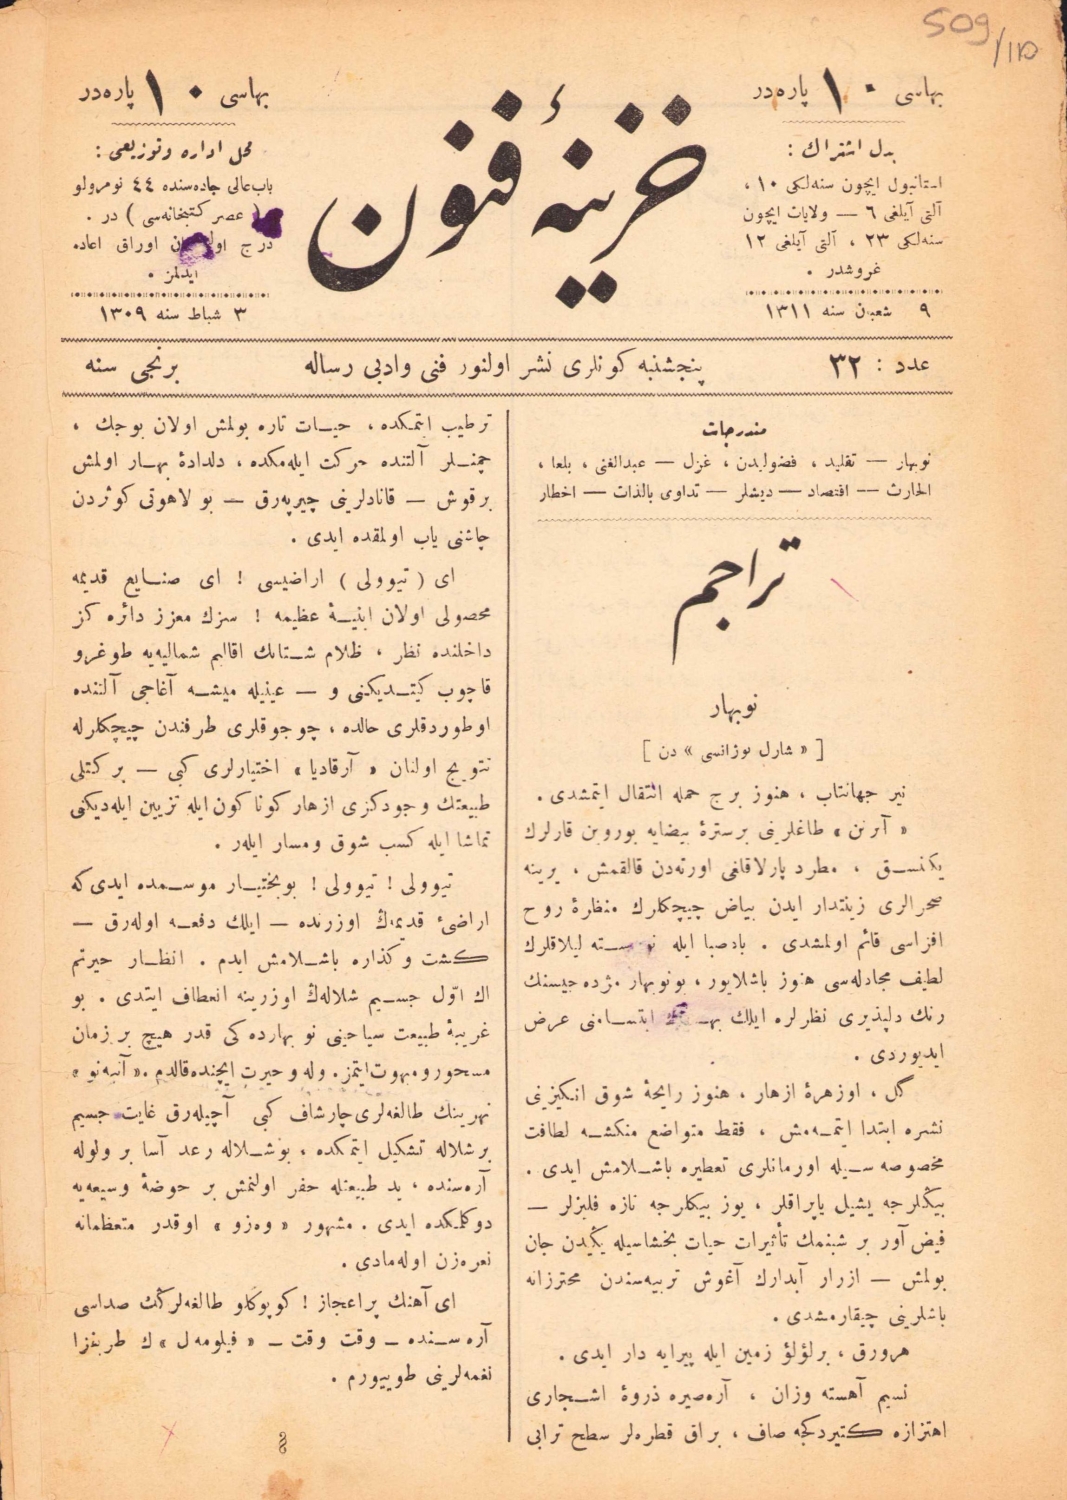 509/110
بهاسی ١٠ پاره‌در
بدل اشتراك :
استانبول ایچون سنه‌لکی ١٠ ،
آلتی آیلغی ٦ — ولایات ایچون
سنه‌لکی ٢٣ ، آلتی آیلغی ١٢
غروشدر .
٩ شعبان سنه ١٣١١
خزینهٔ فنون
بهاسی ١٠ پاره‌در
محل اداره وتوزیعی :
باب‌عالی جاده‌سنده ٤٤ نومرولو
( عصر کتبخانه‌سی ) در .
درج اوراق اعاده
ایدلمز .
٣ شباط سنه ١٣٠٩
عدد : ٣٢
پنجشنبه کونلری نشر اولنور فنی وادبی رساله
برنجی سنه
مندرجات
نوبهار — تقلید ، فضولیدن ، غزل — عبدالغنی ، بلعا ،
الحارث — اقتصاد — دیشلر — تداوی بالذات — اخطار
تراجم
نوبهار
[ « شارل بوژانسی » دن ]
نیر جهانتاب ، هنوز برج حمله انتقال ایتمشدی .
« آبرنن » طاغلرینی برسترهٔ بیضایه بوروین قارلرك
یکنسق ، مطرد پارلاقلغی اورته‌دن قالقمش ، یرینه
صحرالری زینتدار ایدن بیاض چیچکلرك منظرهٔ روح
افزاسی قائم اولمشدی . بادصبا ایله لیلاقلرك
لطیف مجادله‌سی هنوز باشلایور ، بونوبهار مژده‌جیسنك
رنك دلپذیری نظرلره ایلك ابتسامنی عرض
ایدیوردی .
گل ، اوزهرهٔ ازهار ، هنوز رایحهٔ شوق انکیزینی
نشره ابتدا ایتمه‌مش ، فقط متواضع منکشه لطافت
مخصوصه سیله اورمانلری تعطیره باشلامش ایدی .
بیکلرجه یشیل یاپراقلر ، یوز بیکلرجه تازه فلیزلر —
فیض آور بر شبنمك تأثیرات حیات بخشاسیله یکیدن جان
بولمش — ازرار آبدارك آغوش تربیه‌سندن محترزانه
باشلرینی چیقارمشدی .
هرورق ، برلؤلؤ زمین ایله پیرایه دار ایدی .
نسیم آهسته وزان ، آره‌صیره ذروهٔ اشجاری
اهتزازه کتیردکجه صاف ، براق قطره‌لر سطح ترابی
ترطیب ایتمکده ، حیات تازه بولمش اولان بوجك ،
چمنلر آلتنده حرکت ایله‌مکده ، دلدادهٔ بهار اولمش
برقوش — قانادلرینی چیرپه‌رق — بو لاهوتی کوژردن
چاشنی یاب اولمقده ایدی .
ای ( تیوولی ) اراضیسی ! ای صنایع قدیمه
محصولی اولان ابنیهٔ عظیمه ! سزك معزز دائره کز
داخلنده نظر ، ظلام شتانك اقالیم شمالیه‌یه طوغرو
قاچوب کیتدیکنی و — عینیله میشه آغاجی آلتنده
اوطوردقلری حالده ، چوجوقلری طرفندن چیچکلرله
تتویج اولنان « آرقادیا » اختیارلری کبی — برکتلی
طبیعتك وجودکزی ازهار کوناکون ایله تزیین ایله‌دیکنی
تماشا ایله کسب شوق ومسار ایلر .
تیوولی ! تیوولی ! بوبختیار موسمده ایدی که
اراضیٔ قدیمه‌ك اوزرنده — ایلك دفعه اوله‌رق —
کشت وکذاره باشلامش ایدم . انظار حیرتم
اك اوّل جسیم شلاله‌ك اوزرینه انعطاف ایتدی . بو
غریبهٔ طبیعت سیاحینی نو بهارده کی قدر هیچ بر زمان
مسحورومبهوت ایتمز. وله وحیرت ایچنده‌قالدم .« آنیه‌نو »
نهرینك طالغه‌لری چارشاف کبی آچیله‌رق غایت جسیم
برشلاله تشکیل ایتمکده ، بوشلاله رعد آسا بر ولوله
آره‌سنده ، ید طبیعتله حفر اولنمش بر حوضهٔ وسیعه‌یه
دوکلمکده ایدی . مشهور « وه‌زو » اوقدر متعظمانه
نعره‌زن اوله‌مادی .
ای آهنك پراعجاز ! کوپوکلو طالغه‌لرکك صداسی
آره سنده — وقت وقت — « فیلومه‌ل »ك طربفزا
نغمه‌لرینی طوییورم .